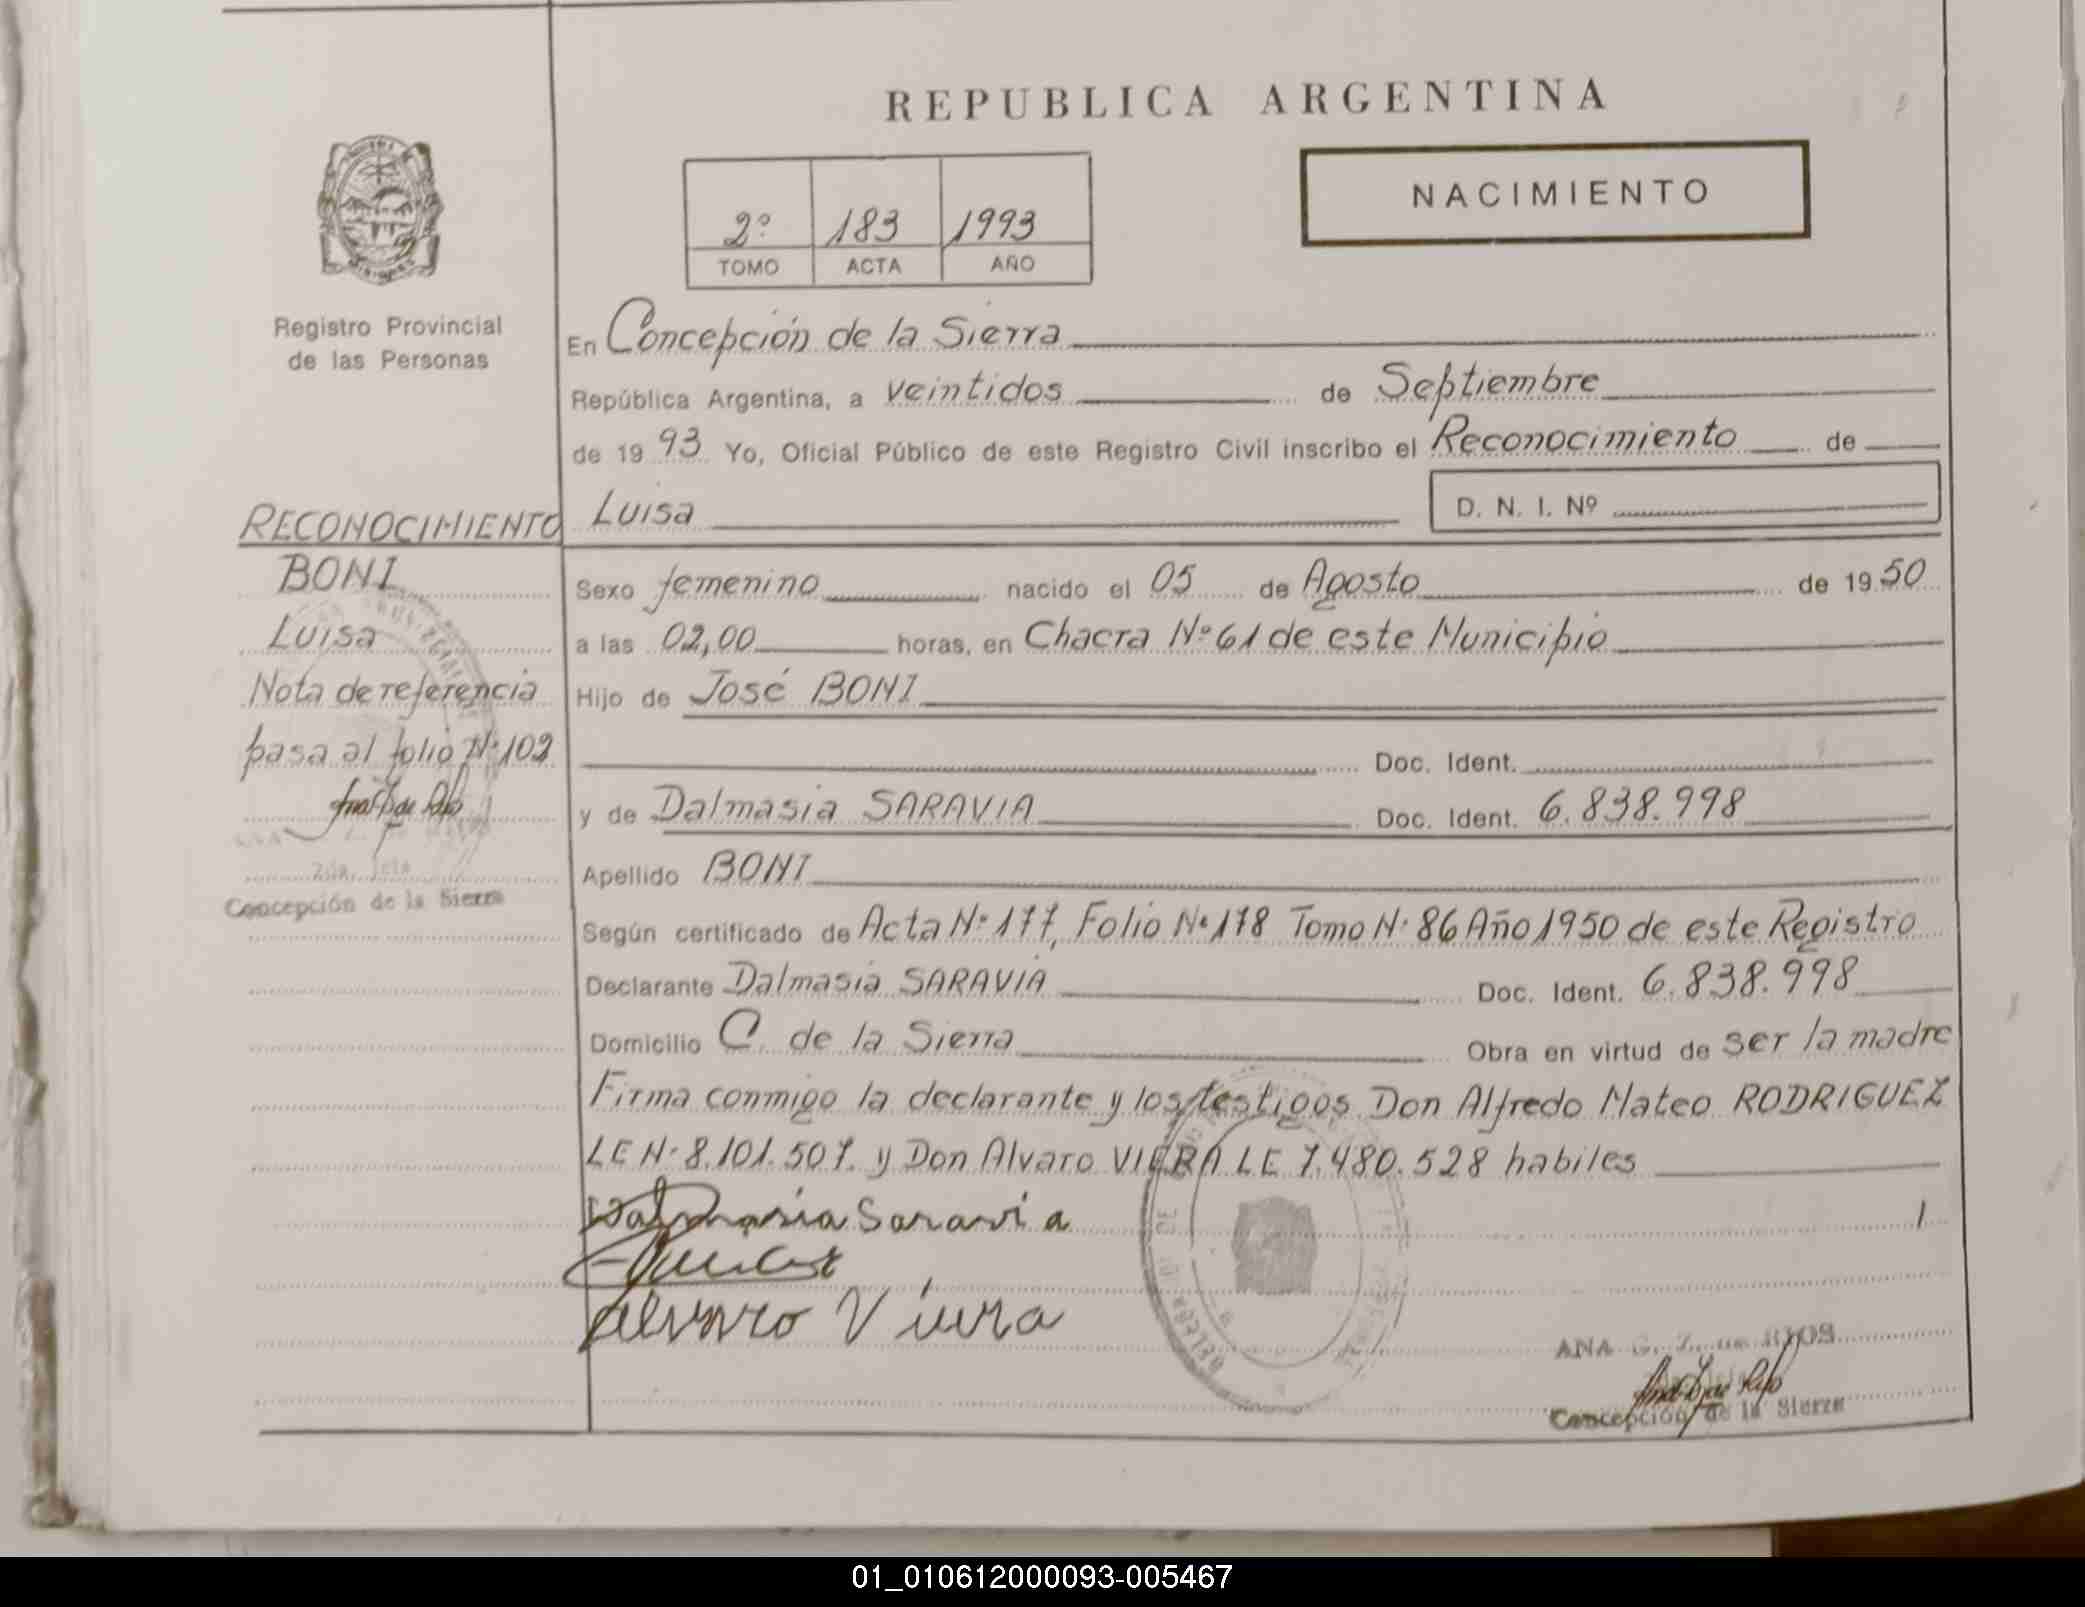 REPUBLICA ARGENTINA
NACIMIENTO
2º 183 1993
TOMO ACTA AÑO
Registro Provincial
de las Personas
En Concepción de la Sierra
República Argentina, a veintidos de Septiembre
de 19 93 Yo, Oficial Público de este Registro Civil inscribo el Reconocimiento de
Luisa D. N. I. Nº
RECONOCIMIENTO
BONI
Luisa
Nota de referencia
pasa al folio Nº 102
Concepción de la Sierra
Sexo femenino nacido el 05 de Agosto de 19 50
a las 02,00 horas, en Chacra Nº 61 de este Municipio
Hijo de José BONI
Doc. Ident.
y de Dalmasia SARAVIA Doc. Ident. 6.838.998
Apellido BONI
Según certificado de Acta Nº 177, Folio Nº 178 Tomo Nº 86 Año 1950 de este Registro
Declarante Dalmasia SARAVIA Doc. Ident. 6.838.998
Domicilio C. de la Sierra Obra en virtud de ser la madre
Firma conmigo la declarante y los testigos Don Alfredo Mateo RODRIGUEZ
LE Nº 8.101.507. y Don Alvaro VIERA LE 7.480.528 habiles
Dalmasia Saravia
Alvaro Viera
ANA G. Z. de RIOS
Concepción de la Sierra
01_010612000093-005467